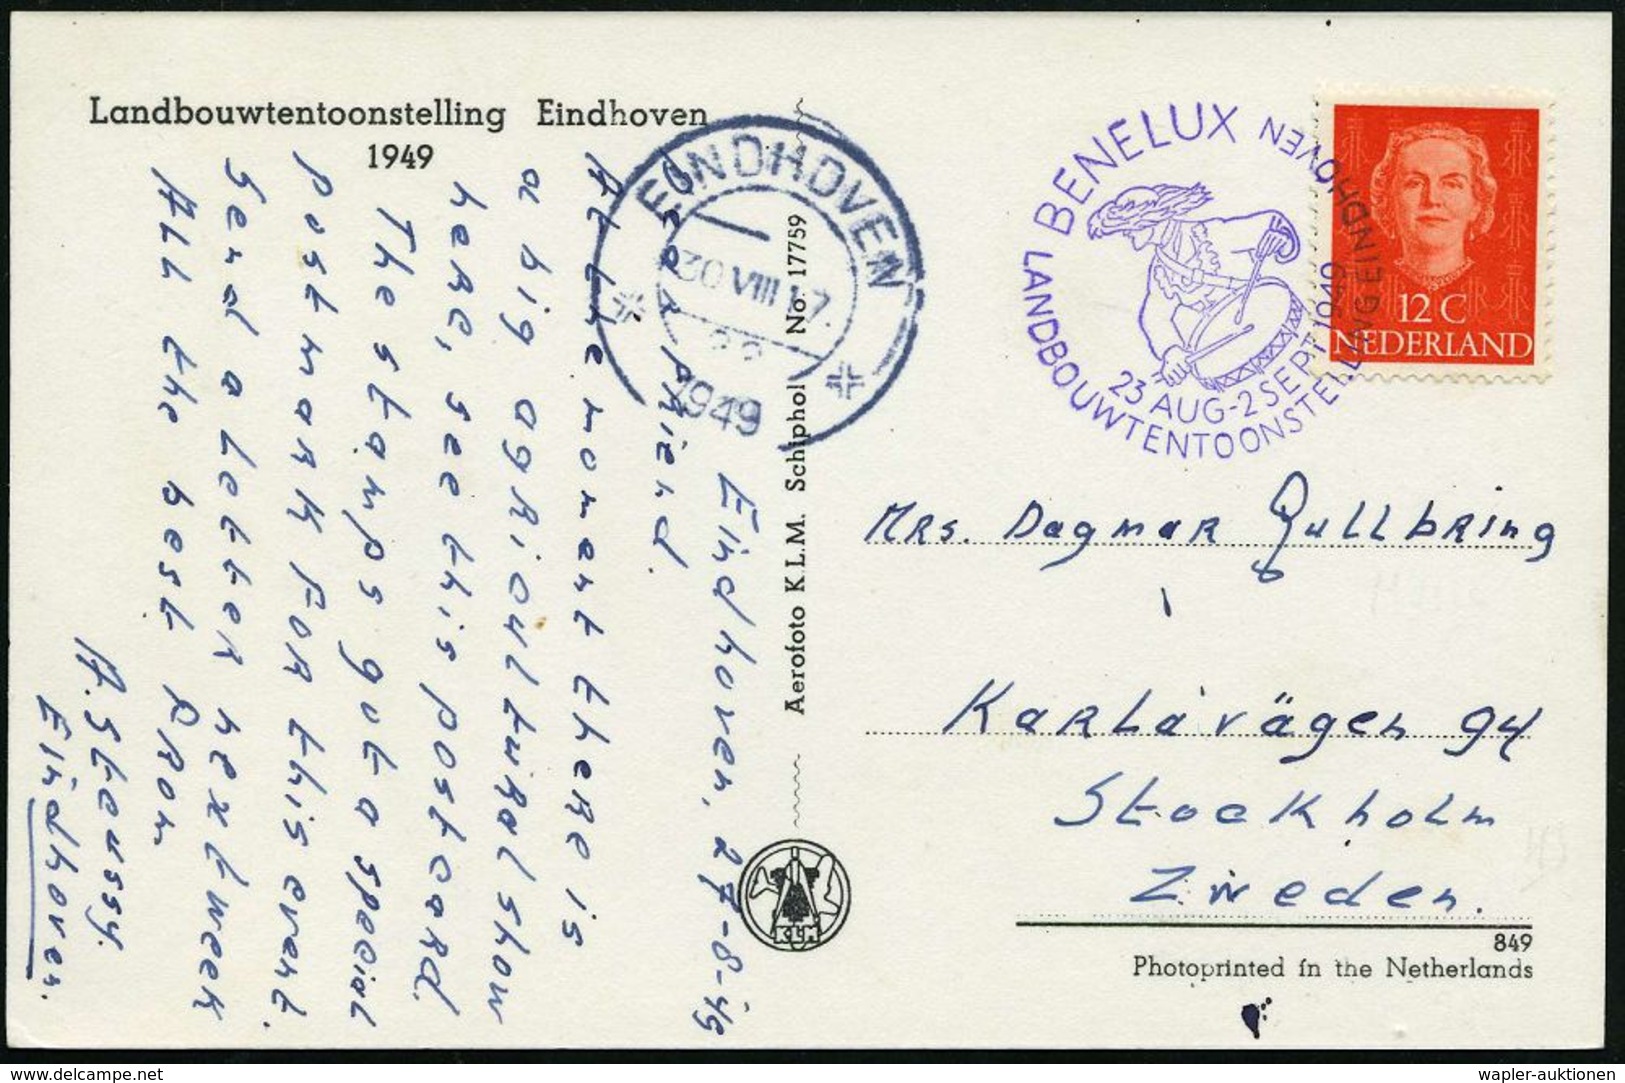 Landbouwtentoonstelling Eindhoven
1949
EINDHOVEN
30 VIII 17.
1949
BENELUX
LANDBOUWTENTOONSTELLING EINDHOVEN
23 AUG-2 SEPT 1949
12 C
NEDERLAND
Eindhoven, 27-8-'49
Dear Friend.
At the moment there is
a big agricultural show
here, see this postcard.
The stamps got a special
postmark for this event.
Send a letter next week
All the best from
Eindhoven.
Aerofoto K.L.M. Schiphol No. 17759
KLM
Mrs. Dagmar Gullbring
Karlavägen 94
Stockholm
Zweden.
849
Photoprinted in the Netherlands
www.delcampe.net
wapler-auktionen